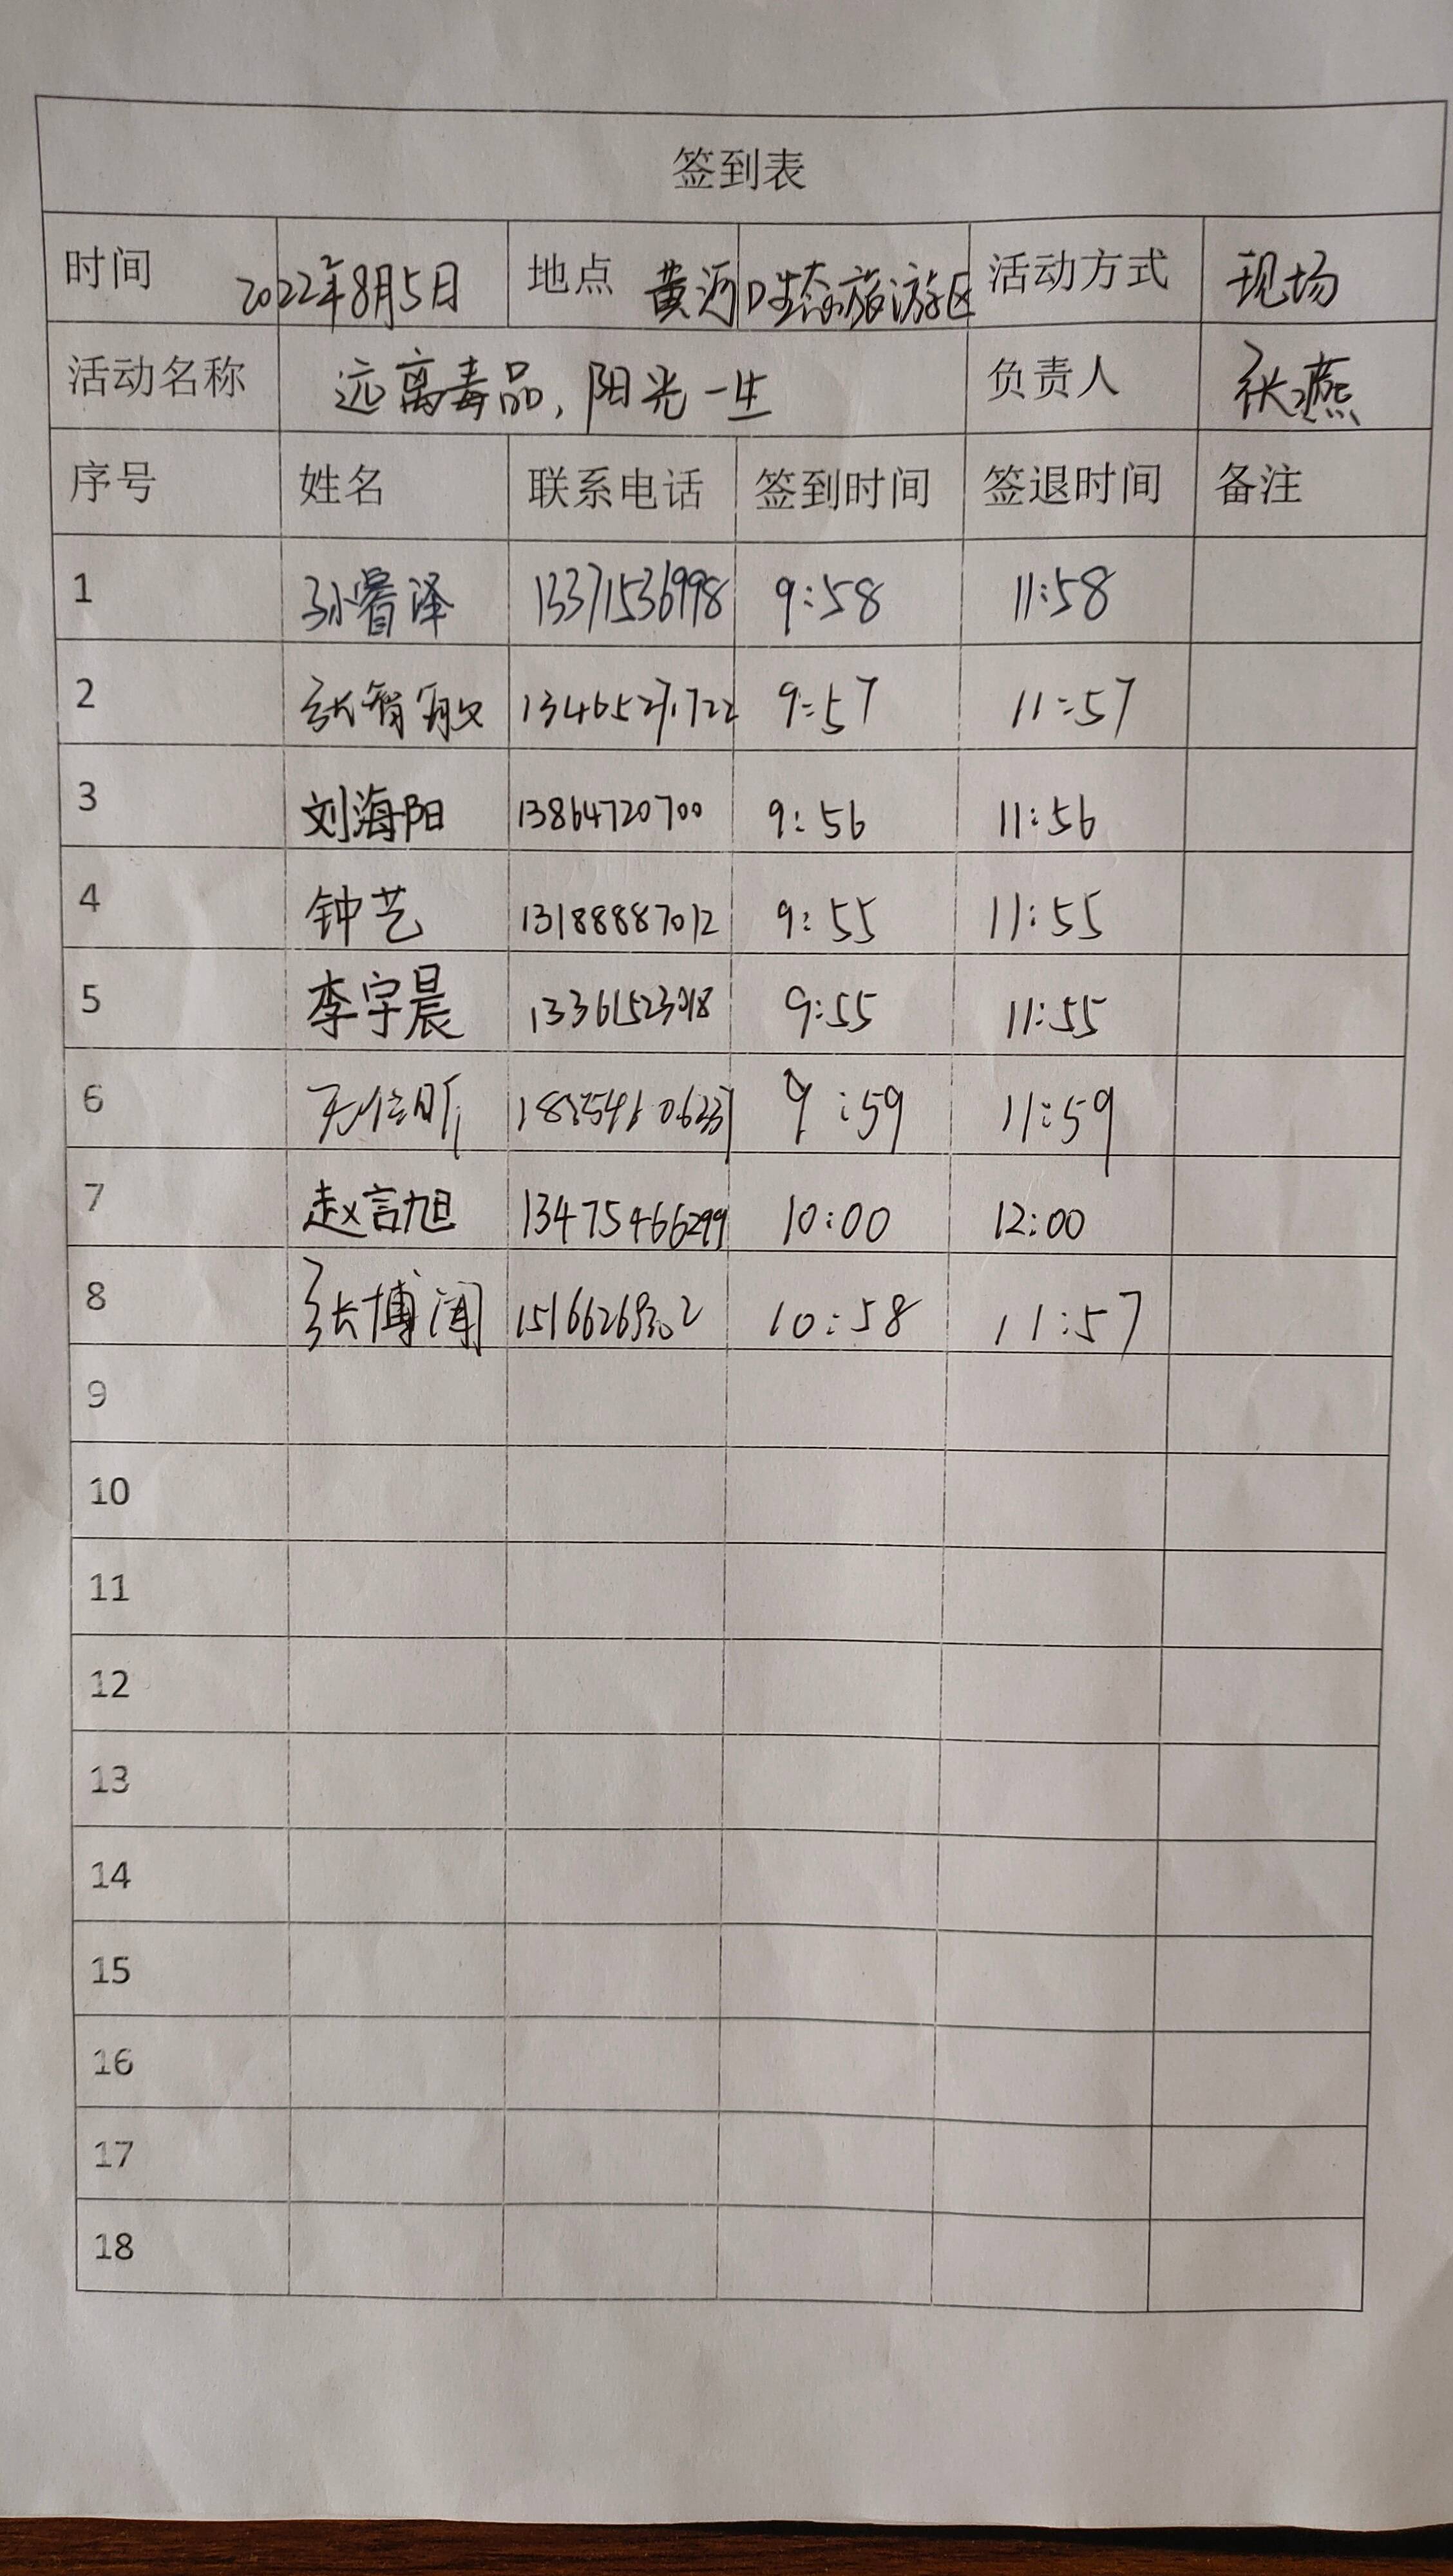 签到表
时间 2022年8月5日 地点 黄河口生态旅游区 活动方式 现场
活动名称 远离毒品，阳光一生 负责人 张燕
序号 姓名 联系电话 签到时间 签退时间 备注
1 孙睿泽 13371536998 9:58 11:58
2 张智敏 9:57 11:57
3 刘海阳 13864720700 9:56 11:56
4 钟艺 13188887012 9:55 11:55
5 李宇晨 13361523018 9:55 11:55
6 9:59 11:59
7 赵言旭 13475466299 10:00 12:00
8 张博闻 15166269302 10:58 11:57
9
10
11
12
13
14
15
16
17
18